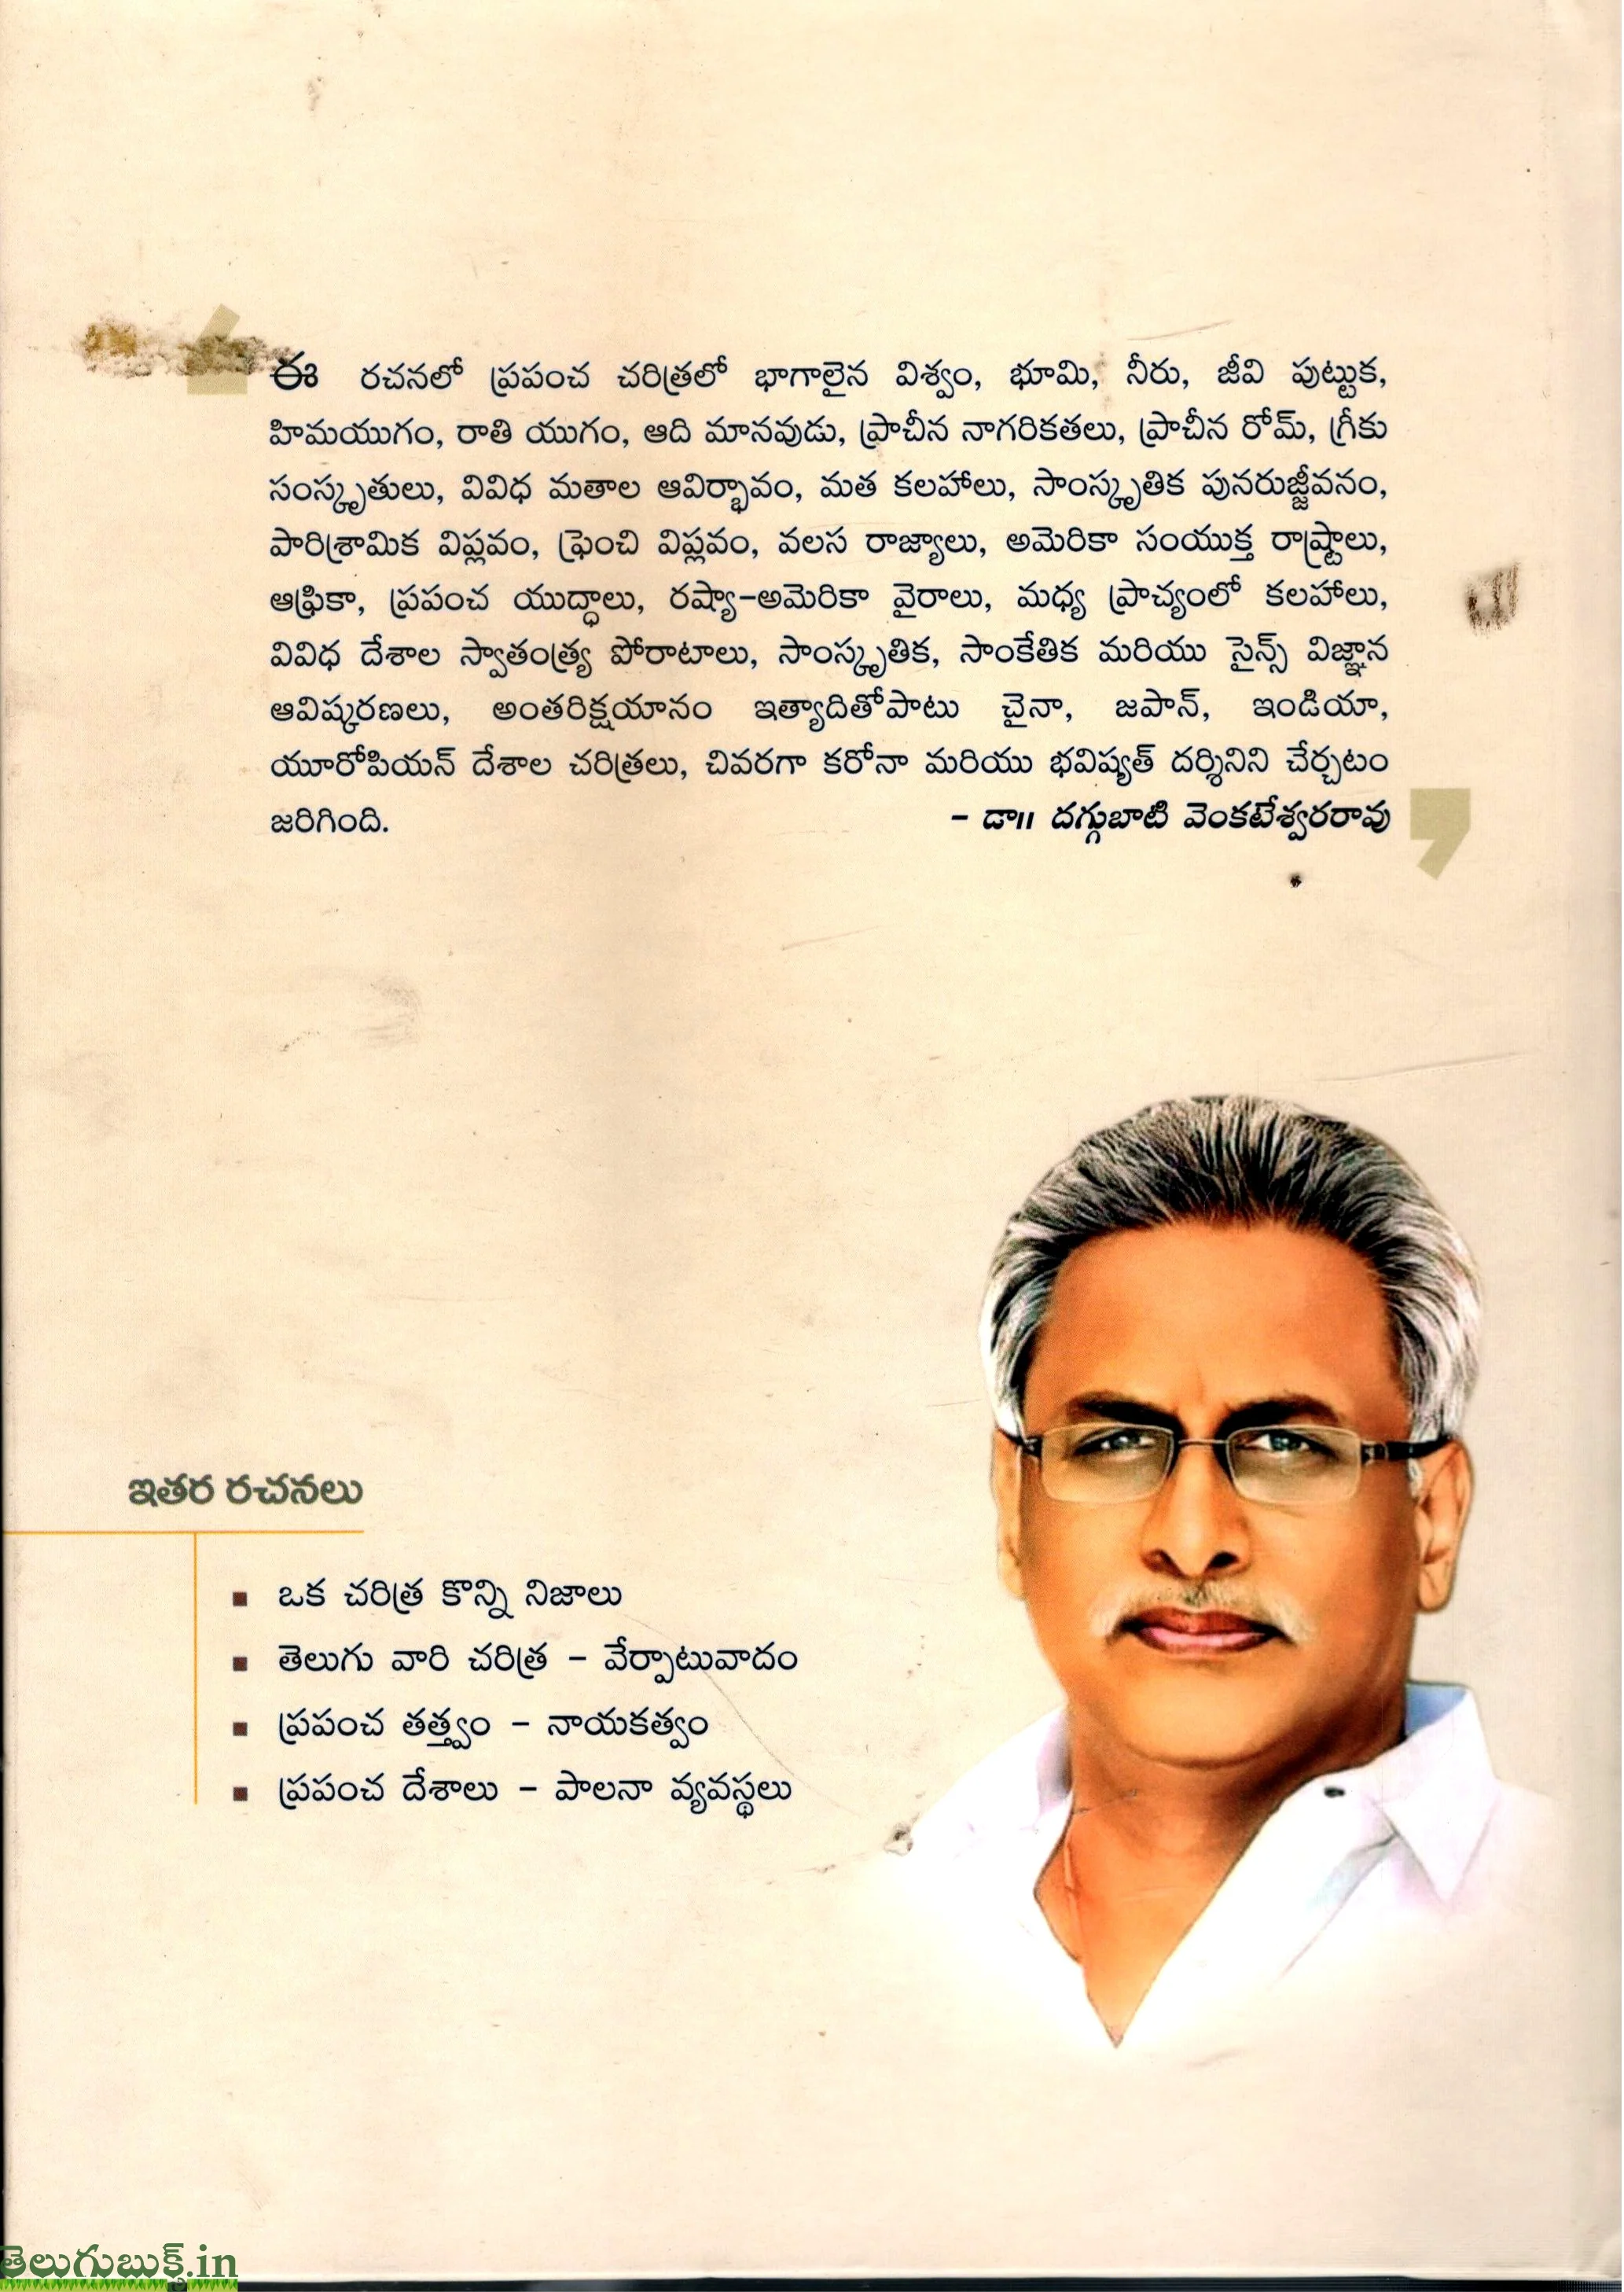 ఈ రచనలో ప్రపంచ చరిత్రలో భాగాలైన విశ్వం, భూమి, నీరు, జీవి పుట్టుక,
హిమయుగం, రాతి యుగం, ఆది మానవుడు, ప్రాచీన నాగరికతలు, ప్రాచీన రోమ్, గ్రీకు
సంస్కృతులు, వివిధ మతాల ఆవిర్భావం, మత కలహాలు, సాంస్కృతిక పునరుజ్జీవనం,
పారిశ్రామిక విప్లవం, ఫ్రెంచి విప్లవం, వలస రాజ్యాలు, అమెరికా సంయుక్త రాష్ట్రాలు,
ఆఫ్రికా, ప్రపంచ యుద్ధాలు, రష్యా-అమెరికా వైరాలు, మధ్య ప్రాచ్యంలో కలహాలు,
వివిధ దేశాల స్వాతంత్ర్య పోరాటాలు, సాంస్కృతిక, సాంకేతిక మరియు సైన్స్ విజ్ఞాన
ఆవిష్కరణలు, అంతరిక్షయానం ఇత్యాదితోపాటు చైనా, జపాన్, ఇండియా,
యూరోపియన్ దేశాల చరిత్రలు, చివరగా కరోనా మరియు భవిష్యత్ దర్శినిని చేర్చటం
జరిగింది. - డా॥ దగ్గుబాటి వెంకటేశ్వరరావు
ఇతర రచనలు
▪ ఒక చరిత్ర కొన్ని నిజాలు
▪ తెలుగు వారి చరిత్ర - వేర్పాటువాదం
▪ ప్రపంచ తత్త్వం - నాయకత్వం
▪ ప్రపంచ దేశాలు - పాలనా వ్యవస్థలు
తెలుగుబుక్స్.in